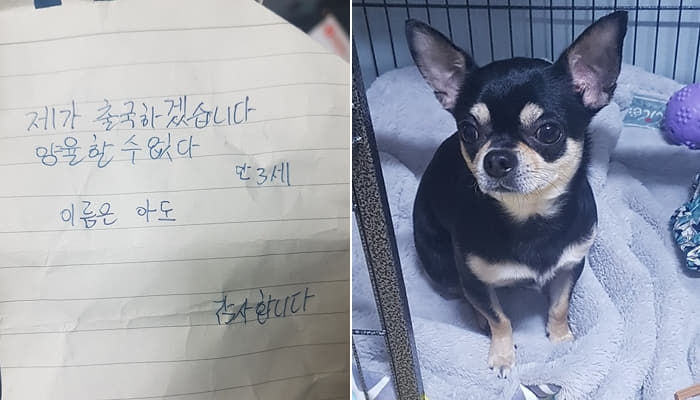 제가 출국하겠습니다
양율할 수 없다
만 3세
이름은 아도
감사합니다